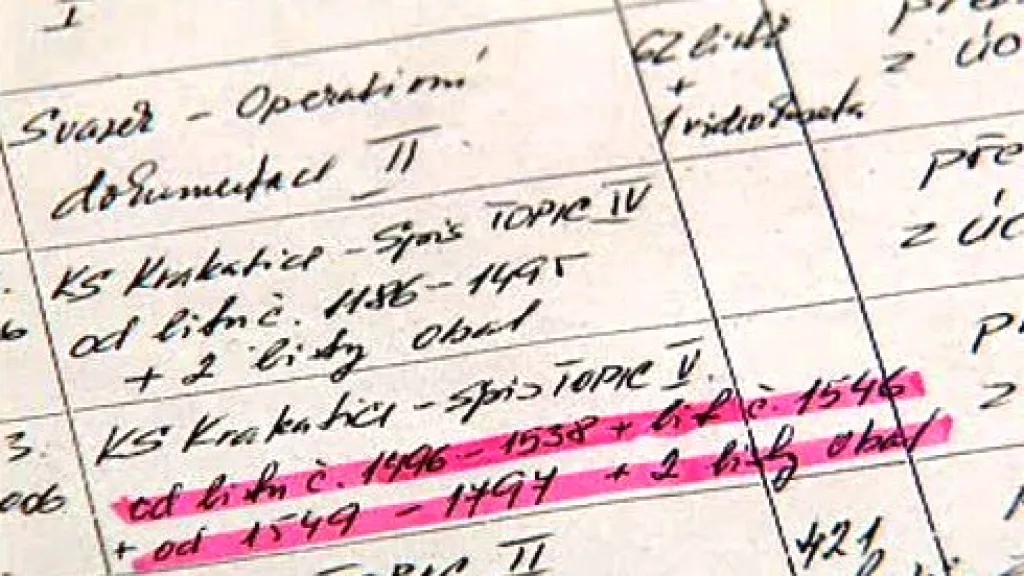 I
Svazek - Operativní
dokumentace II
62 listů
+
1 videokazeta
z ÚO
KS Krakatice - Spis TOPIC IV
od listu č. 1186 - 1495
+ 2 listy obal
z ÚO
3.
006
KS Krakatice - spis TOPIC V.
od listu č. 1496 - 1538 + list č. 1546
+ od 1549 - 1797 + 2 listy obal
z
TOPIC II
421